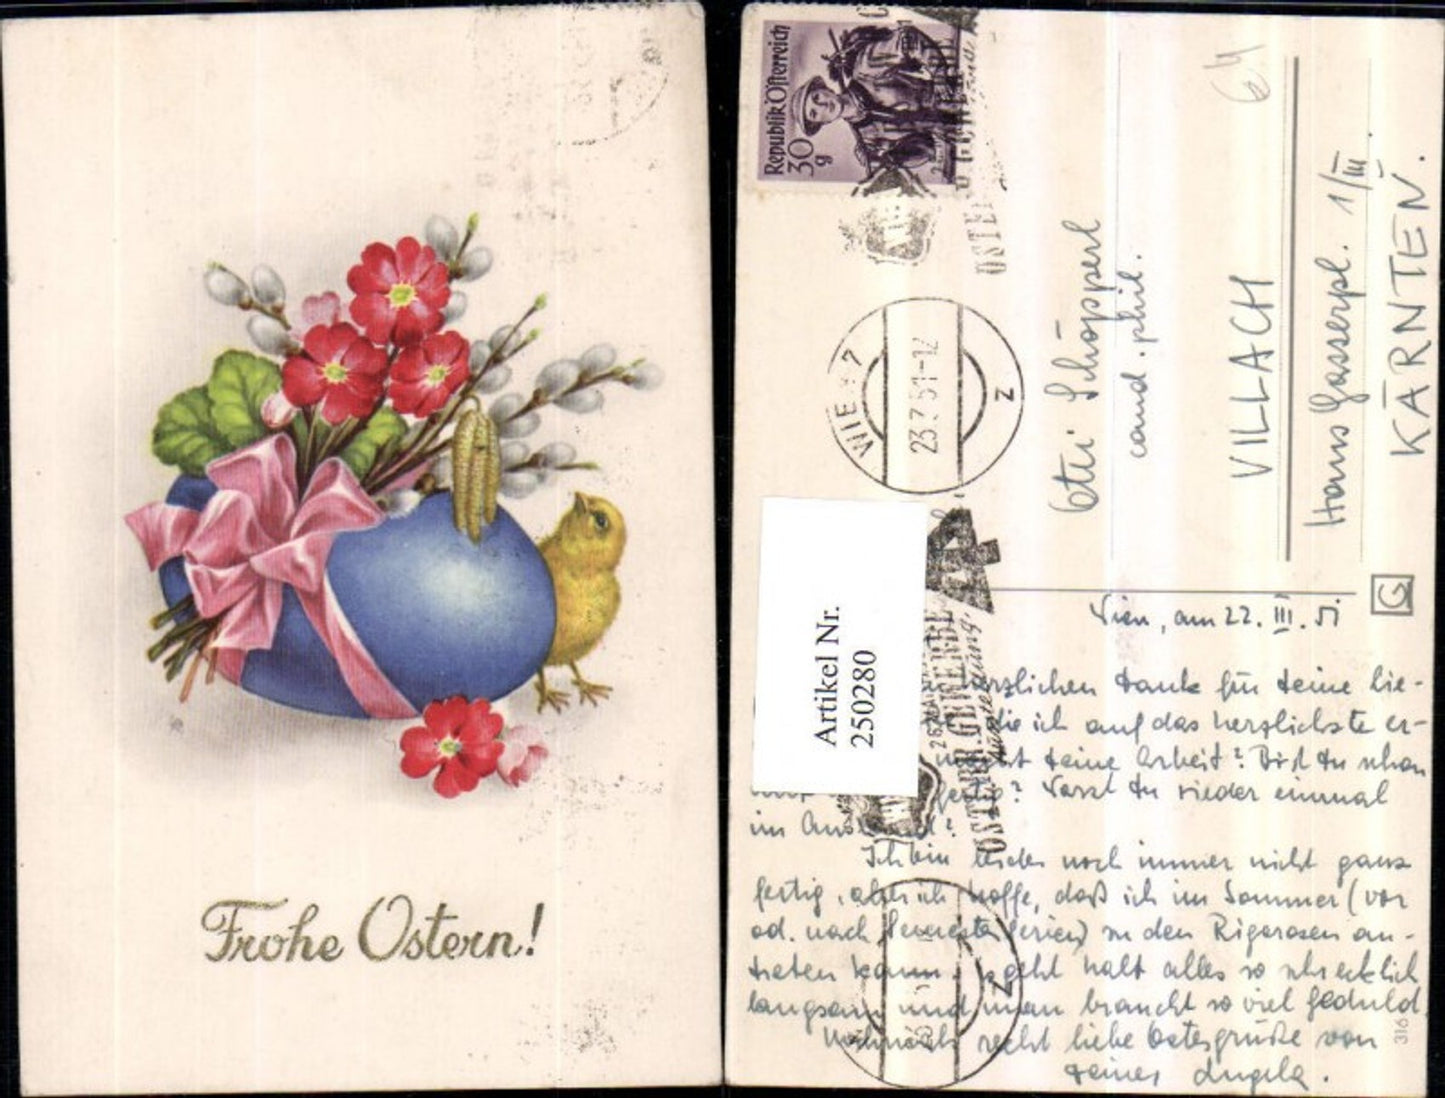 Frohe Ostern!
Republik Österreich
30
g
WIEN 7
23.3.51-12
2
64
Otti Schöpperl
cand. phil.
VILLACH
Hans Gasserpl. 1/III.
KÄRNTEN.
G
Artikel Nr.
250280
ÖSTERR. GEWERBE
Wien, am 22. III. 51
herzlichen Dank für deine lie-
die ich auf das herzlichste er-
macht deine Arbeit? Bist du schon
fertig? Warst du wieder einmal
im Ausland?
Ich bin leider noch immer nicht ganz
fertig, aber ich hoffe, daß ich im Sommer (vor
od. nach Semesterferien) zu den Rigorosen an-
treten kann. geht halt alles so schrecklich
langsam und man braucht so viel Geduld.
Nochmals recht liebe Ostergrüße von
deiner Angela.
316